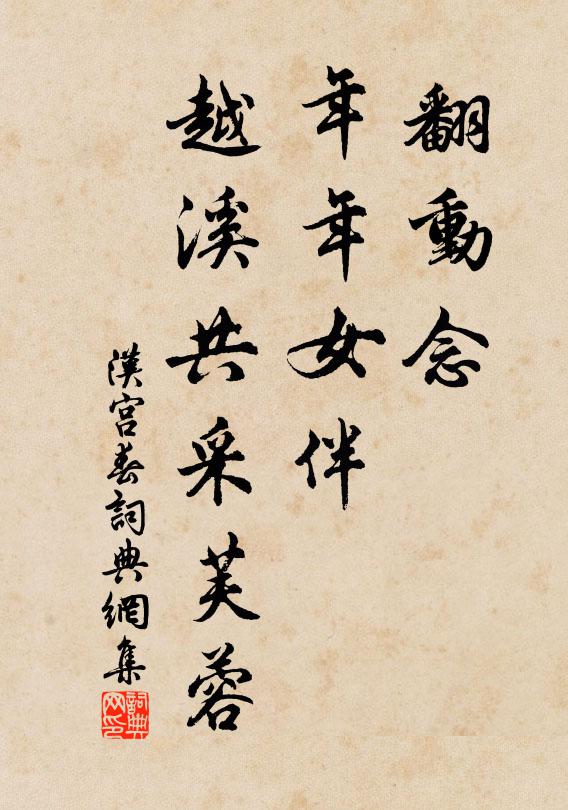 翻動念
年年女伴
越溪共采芙蓉
漢宮春詞典網集
詞典
网印